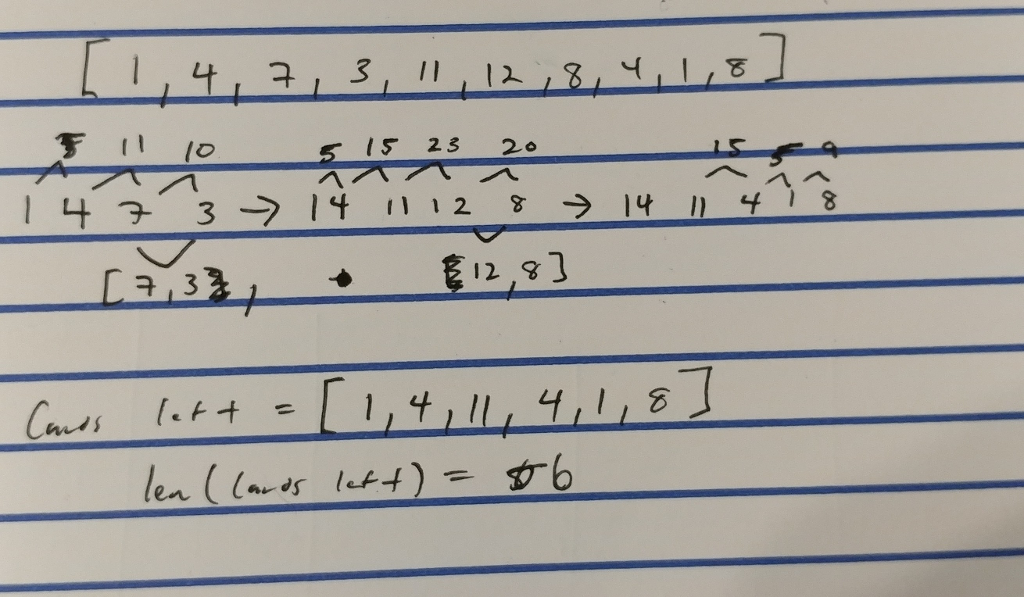 [1, 4, 7, 3, 11, 12, 8, 4, 1, 8]
5 11 10 5 15 23 20 15 5 9
1 4 7 3 → 1 4 11 12 8 → 1 4 11 4 1 8
[7,3], [12,8]
Cards left = [1, 4, 11, 4, 1, 8]
len(Cards left) = 6